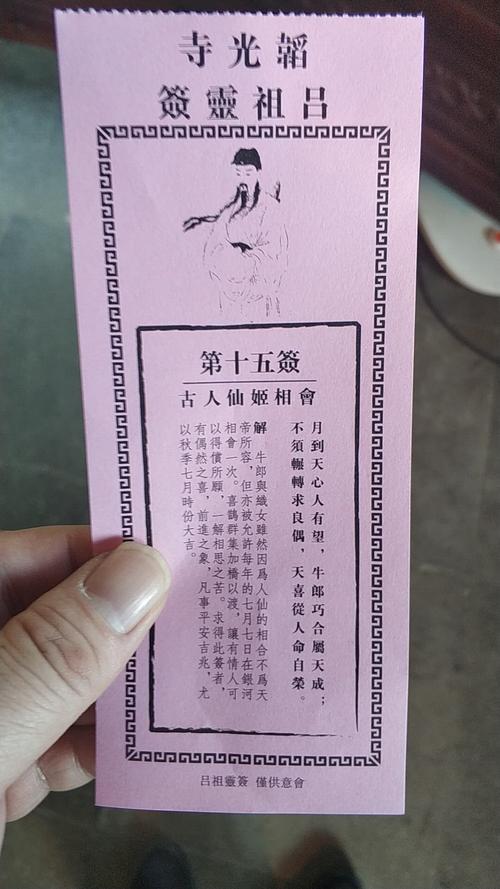 韜光寺
呂祖靈簽
第十五簽
古人仙姬相會
月到天心人有望，牛郎巧合屬天成；
不須輾轉求良偶，天喜從人命自榮。
解　牛郎與織女雖然因爲人仙的相合不爲天
帝所容，但亦被允許每年的七月七日在銀河
相會一次。喜鵲群集加橋以渡，讓有情人可
以得償所願，一解相思之苦。求得此簽者，
有偶然之喜，前進之象，凡事平安吉兆，尤
以秋季七月時份大吉。
呂祖靈簽 僅供意會